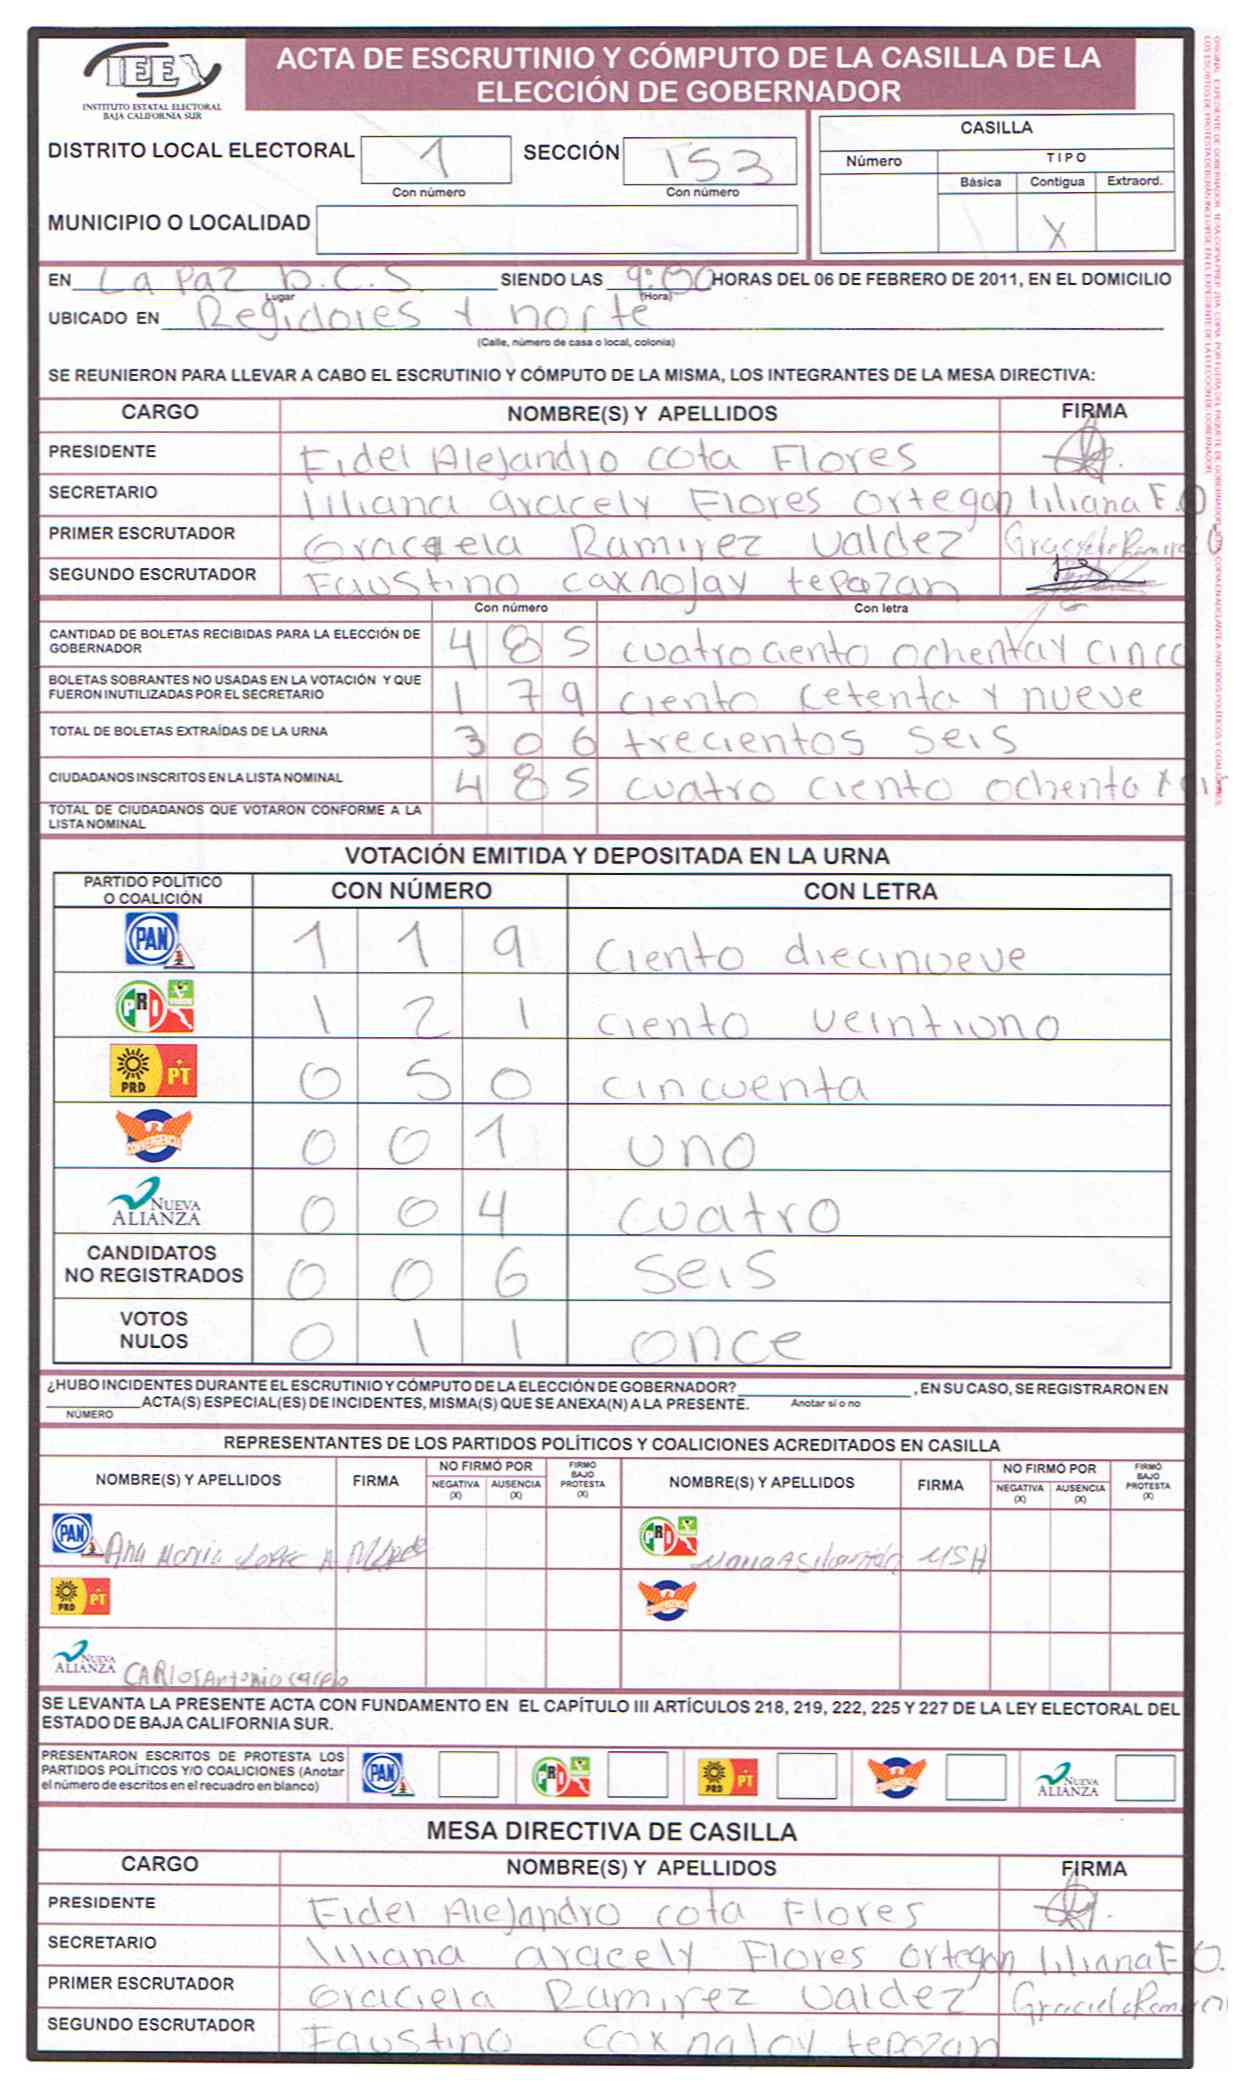 IEE
INSTITUTO ESTATAL ELECTORAL
BAJA CALIFORNIA SUR
ACTA DE ESCRUTINIO Y CÓMPUTO DE LA CASILLA DE LA
ELECCIÓN DE GOBERNADOR
DISTRITO LOCAL ELECTORAL 1 SECCIÓN 153
Con número Con número
MUNICIPIO O LOCALIDAD
CASILLA
Número TIPO
Básica Contigua Extraord.
X
EN La Paz b.C.S. SIENDO LAS 9:00 HORAS DEL 06 DE FEBRERO DE 2011, EN EL DOMICILIO
Lugar (Hora)
UBICADO EN Regidores y norte
(Calle, número de casa o local, colonia)
SE REUNIERON PARA LLEVAR A CABO EL ESCRUTINIO Y CÓMPUTO DE LA MISMA, LOS INTEGRANTES DE LA MESA DIRECTIVA:
CARGO NOMBRE(S) Y APELLIDOS FIRMA
PRESIDENTE Fidel Alejandro cota Flores
SECRETARIO liliana aracely Flores Ortegon liliana F.O
PRIMER ESCRUTADOR Graciela Ramirez Valdez Graciela Ramirez
SEGUNDO ESCRUTADOR Faustino caxnojay tepozan
Con número Con letra
CANTIDAD DE BOLETAS RECIBIDAS PARA LA ELECCIÓN DE
GOBERNADOR 4 8 5 cuatrociento ochentay cinco
BOLETAS SOBRANTES NO USADAS EN LA VOTACIÓN Y QUE
FUERON INUTILIZADAS POR EL SECRETARIO 1 7 9 ciento cetenta y nueve
TOTAL DE BOLETAS EXTRAÍDAS DE LA URNA 3 0 6 trecientos seis
CIUDADANOS INSCRITOS EN LA LISTA NOMINAL 4 8 5 cuatro ciento ochenta y
TOTAL DE CIUDADANOS QUE VOTARON CONFORME A LA
LISTA NOMINAL
VOTACIÓN EMITIDA Y DEPOSITADA EN LA URNA
PARTIDO POLÍTICO
O COALICIÓN CON NÚMERO CON LETRA
PAN 1 1 9 ciento diecinueve
PRI 1 2 1 ciento veintiuno
PRD PT 0 5 0 cincuenta
CONVERGENCIA 0 0 1 uno
NUEVA ALIANZA 0 0 4 cuatro
CANDIDATOS
NO REGISTRADOS 0 0 6 seis
VOTOS
NULOS 0 1 1 once
¿HUBO INCIDENTES DURANTE EL ESCRUTINIO Y CÓMPUTO DE LA ELECCIÓN DE GOBERNADOR? , EN SU CASO, SE REGISTRARON EN
ACTA(S) ESPECIAL(ES) DE INCIDENTES, MISMA(S) QUE SE ANEXA(N) A LA PRESENTE. Anotar sí o no
NÚMERO
REPRESENTANTES DE LOS PARTIDOS POLÍTICOS Y COALICIONES ACREDITADOS EN CASILLA
NOMBRE(S) Y APELLIDOS FIRMA NO FIRMÓ POR NEGATIVA (X) AUSENCIA (X) FIRMÓ BAJO PROTESTA (X) NOMBRE(S) Y APELLIDOS FIRMA NO FIRMÓ POR NEGATIVA (X) AUSENCIA (X) FIRMÓ BAJO PROTESTA (X)
PAN Ana Maria Lopez PRI MSH
PRD PT CONVERGENCIA
NUEVA ALIANZA CARlos Antonio
SE LEVANTA LA PRESENTE ACTA CON FUNDAMENTO EN EL CAPÍTULO III ARTÍCULOS 218, 219, 222, 225 Y 227 DE LA LEY ELECTORAL DEL
ESTADO DE BAJA CALIFORNIA SUR.
PRESENTARON ESCRITOS DE PROTESTA LOS
PARTIDOS POLÍTICOS Y/O COALICIONES (Anotar
el número de escritos en el recuadro en blanco)
PAN PRI PRD PT NUEVA ALIANZA
MESA DIRECTIVA DE CASILLA
CARGO NOMBRE(S) Y APELLIDOS FIRMA
PRESIDENTE Fidel Alejandro cota Flores
SECRETARIO liliana aracely Flores Ortegon liliana F.O.
PRIMER ESCRUTADOR Graciela Ramirez Valdez Graciela
SEGUNDO ESCRUTADOR Faustino coxnaloy tepozan